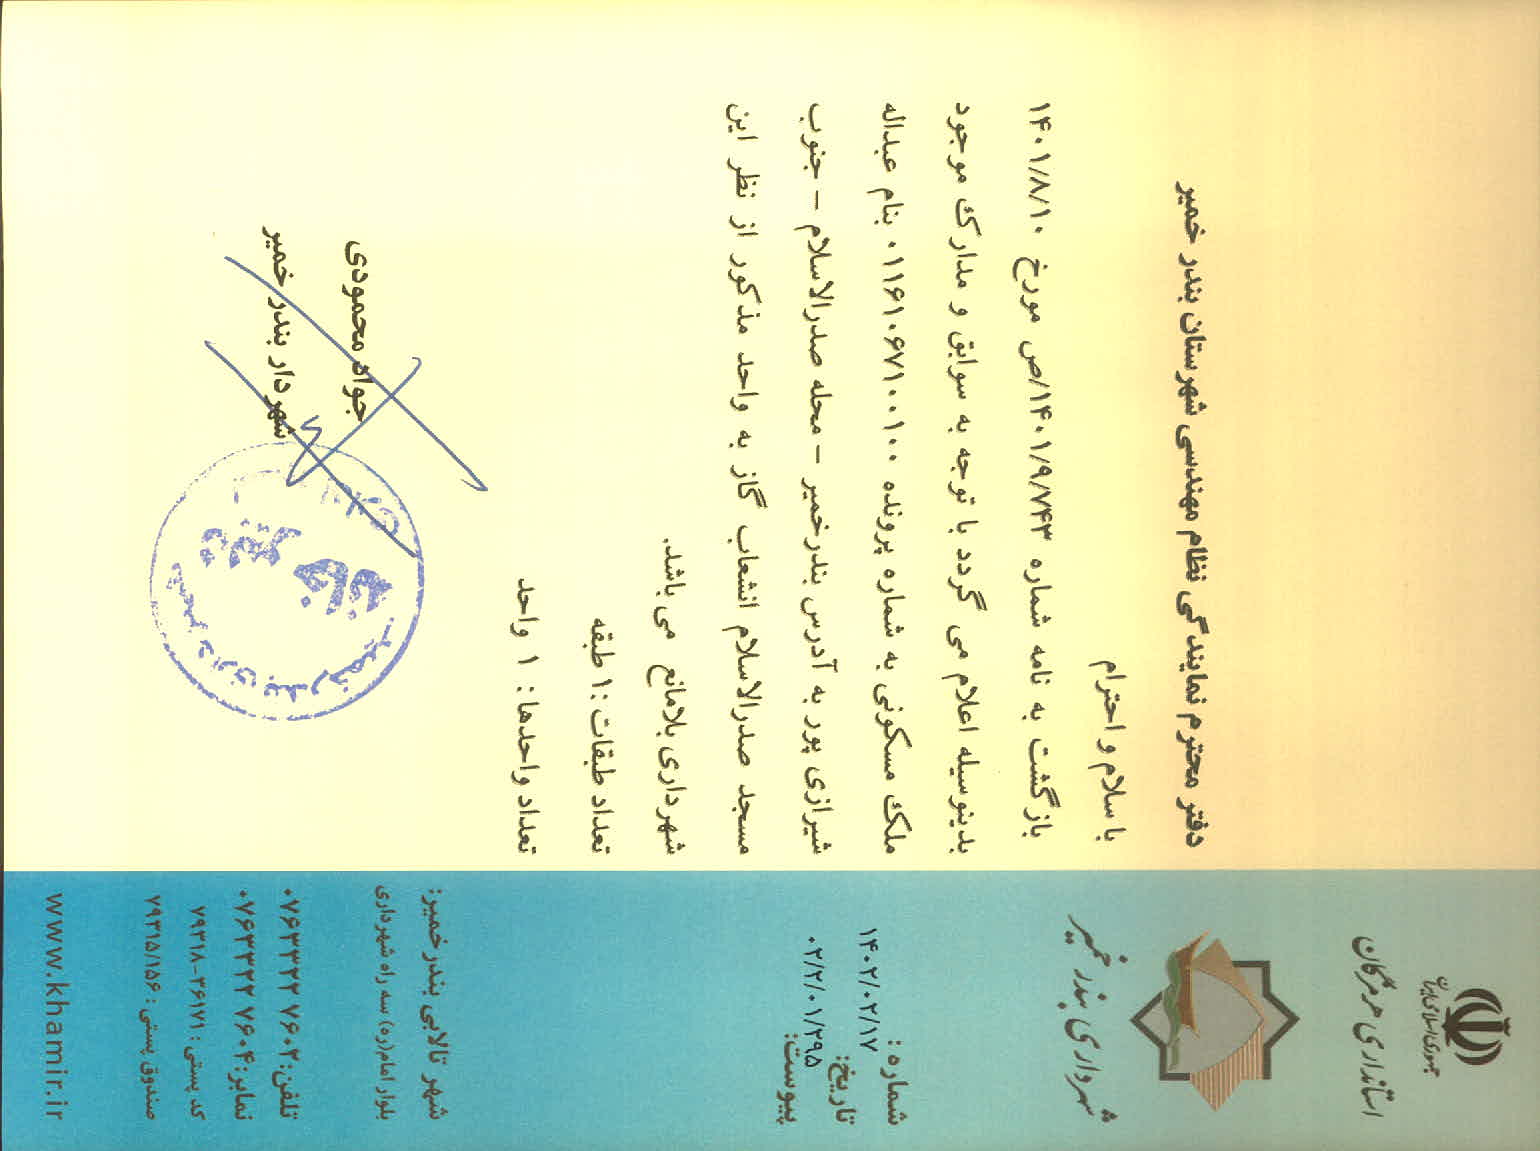 جمهوری اسلامی ایران
استانداری هرمزگان
شهرداری بندر خمیر
شماره :
۱۴۰۲/۰۲/۱۷
تاریخ:
۰۲/۲/۰۱/۲۹۵
پیوست:
دفتر محترم نمایندگی نظام مهندسی شهرستان بندر خمیر
با سلام و احترام
بازگشت به نامه شماره ۱۴۰۱/۹/۷۴۳/ص مورخ ۱۴۰۱/۸/۱۰
بدینوسیله اعلام می گردد با توجه به سوابق و مدارک موجود
ملک مسکونی به شماره پرونده ۰۱۱۶۱۰۶۷۱۰۰۱۰۰ بنام عبداله
شیرازی پور به آدرس بندرخمیر – محله صدرالاسلام – جنوب
مسجد صدرالاسلام انشعاب گاز به واحد مذکور از نظر این
شهرداری بلامانع می باشد.
تعداد طبقات :۱ طبقه
تعداد واحدها : ۱ واحد
جواد محمودی
شهردار بندر خمیر
شهر تالابی بندرخمیر:
بلوار امام(ره) سه راه شهرداری
تلفن: ۰۷۶۳۳۲۲ ۷۶۰۲
نمابر: ۰۷۶۳۳۲۲ ۷۶۰۴
کد پستی : ۷۹۳۱۸-۳۶۱۷۱
صندوق پستی : ۷۹۳۱۵/۱۵۶
www.khamir.ir